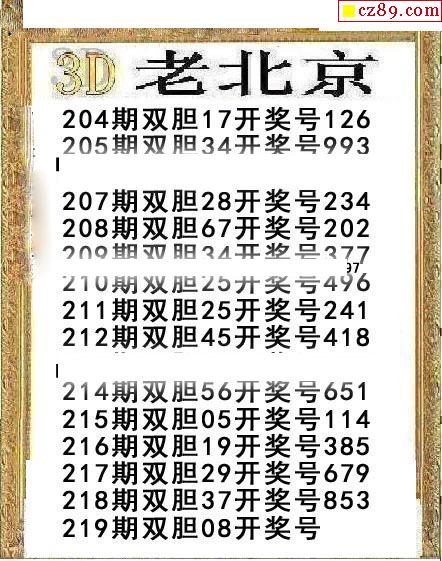 cz89.com
3D 老北京
204期双胆17开奖号126
205期双胆34开奖号993
207期双胆28开奖号234
208期双胆67开奖号202
209期双胆34开奖号377
97
210期双胆25开奖号496
211期双胆25开奖号241
212期双胆45开奖号418
214期双胆56开奖号651
215期双胆05开奖号114
216期双胆19开奖号385
217期双胆29开奖号679
218期双胆37开奖号853
219期双胆08开奖号